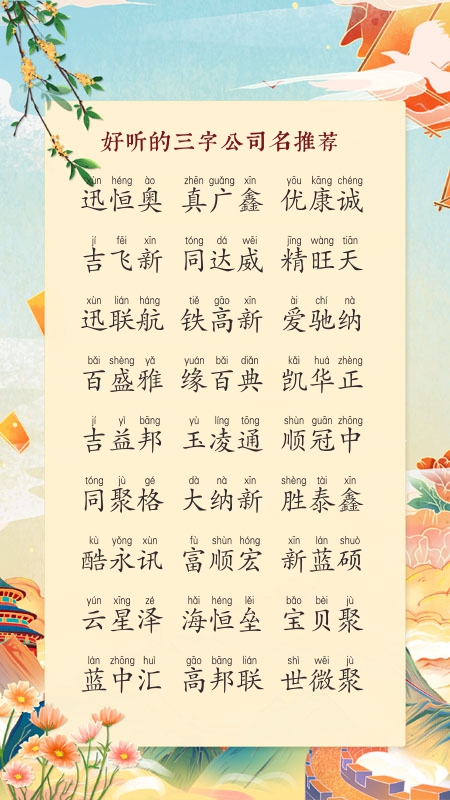 好听的三字公司名推荐
xùn héng ào zhēn guǎng xīn yōu kāng chéng
迅恒奥 真广鑫 优康诚
jí fēi xīn tóng dá wēi jīng wàng tiān
吉飞新 同达威 精旺天
xùn lián háng tiě gāo xīn ài chí nà
迅联航 铁高新 爱驰纳
bǎi shèng yǎ yuán bǎi diǎn kǎi huá zhèng
百盛雅 缘百典 凯华正
jí yì bāng yù líng tōng shùn guān zhōng
吉益邦 玉凌通 顺冠中
tóng jù gé dà nà xīn shèng tài xīn
同聚格 大纳新 胜泰鑫
kù yǒng xùn fù shùn hóng xīn lán shuò
酷永讯 富顺宏 新蓝硕
yún xīng zé hǎi héng lěi bǎo bèi jù
云星泽 海恒垒 宝贝聚
lán zhōng huì gāo bāng lián shì wēi jù
蓝中汇 高邦联 世微聚